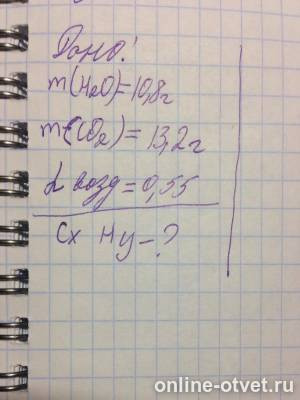 Дано:
m(H₂O)=10,8г
m(CO₂)=13,2г
d возд=0,55
Cx Hy-?
online-otvet.ru